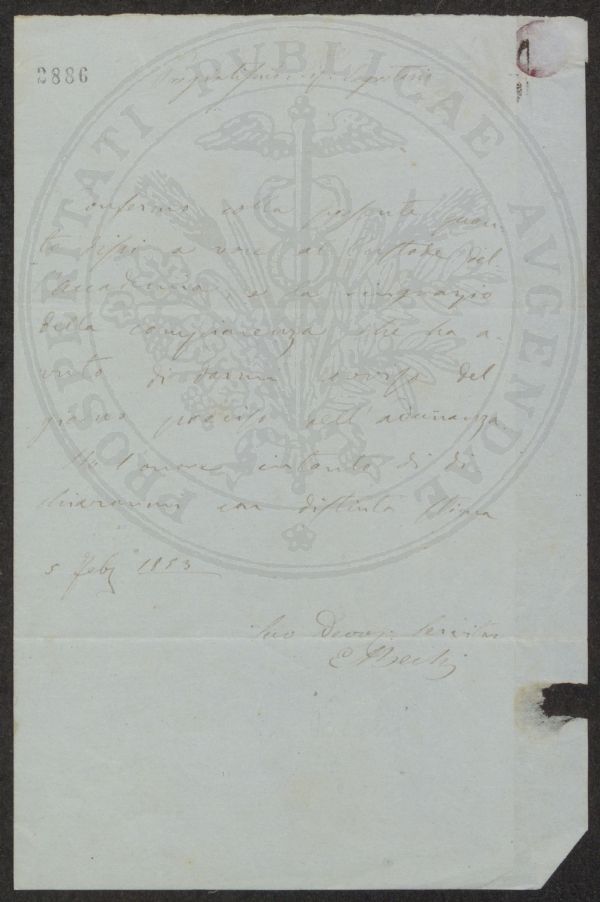 2886
Pregiatissimo Sig. Segretario
PROSPERITATI PVBLICAE AVGENDAE
Confermo colla presente quan
to dissi a voce al Custode del
l'Accademia, e la ringrazio
della compiacenza che ha a-
vuto di darmi avviso del
giorno preciso dell'adunanza
Ho l'onore intanto di di
chiararmi con distinta stima
5 Febj 1853
Suo Devoz. Servitor
E.